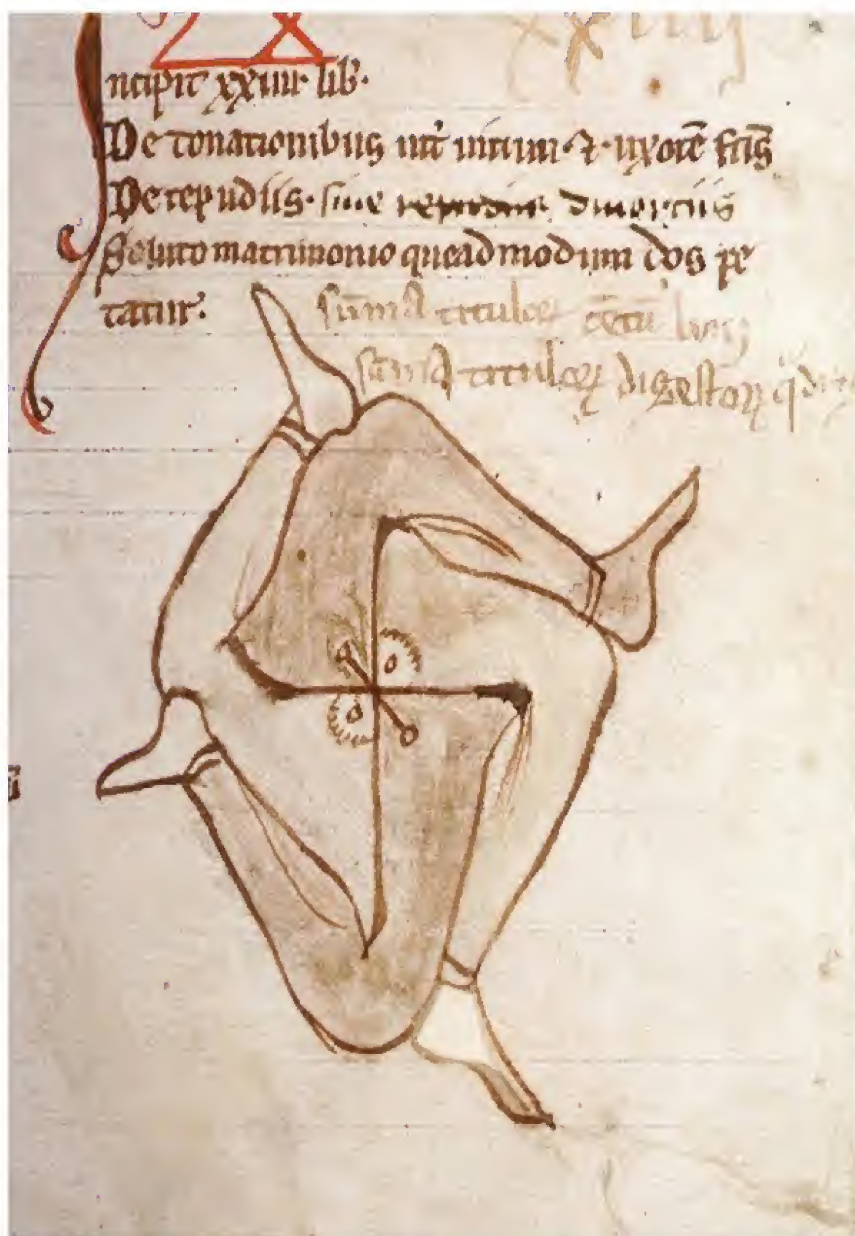 Incipit xxiiii lib.
De donationibus int uirum & uxorē fctis
De repudiis. siue repudiis diuortiis
Soluto matrimonio queadmodum dos pe
tatur.
sūma titulor
sūma titulorꝝ digestorꝝ